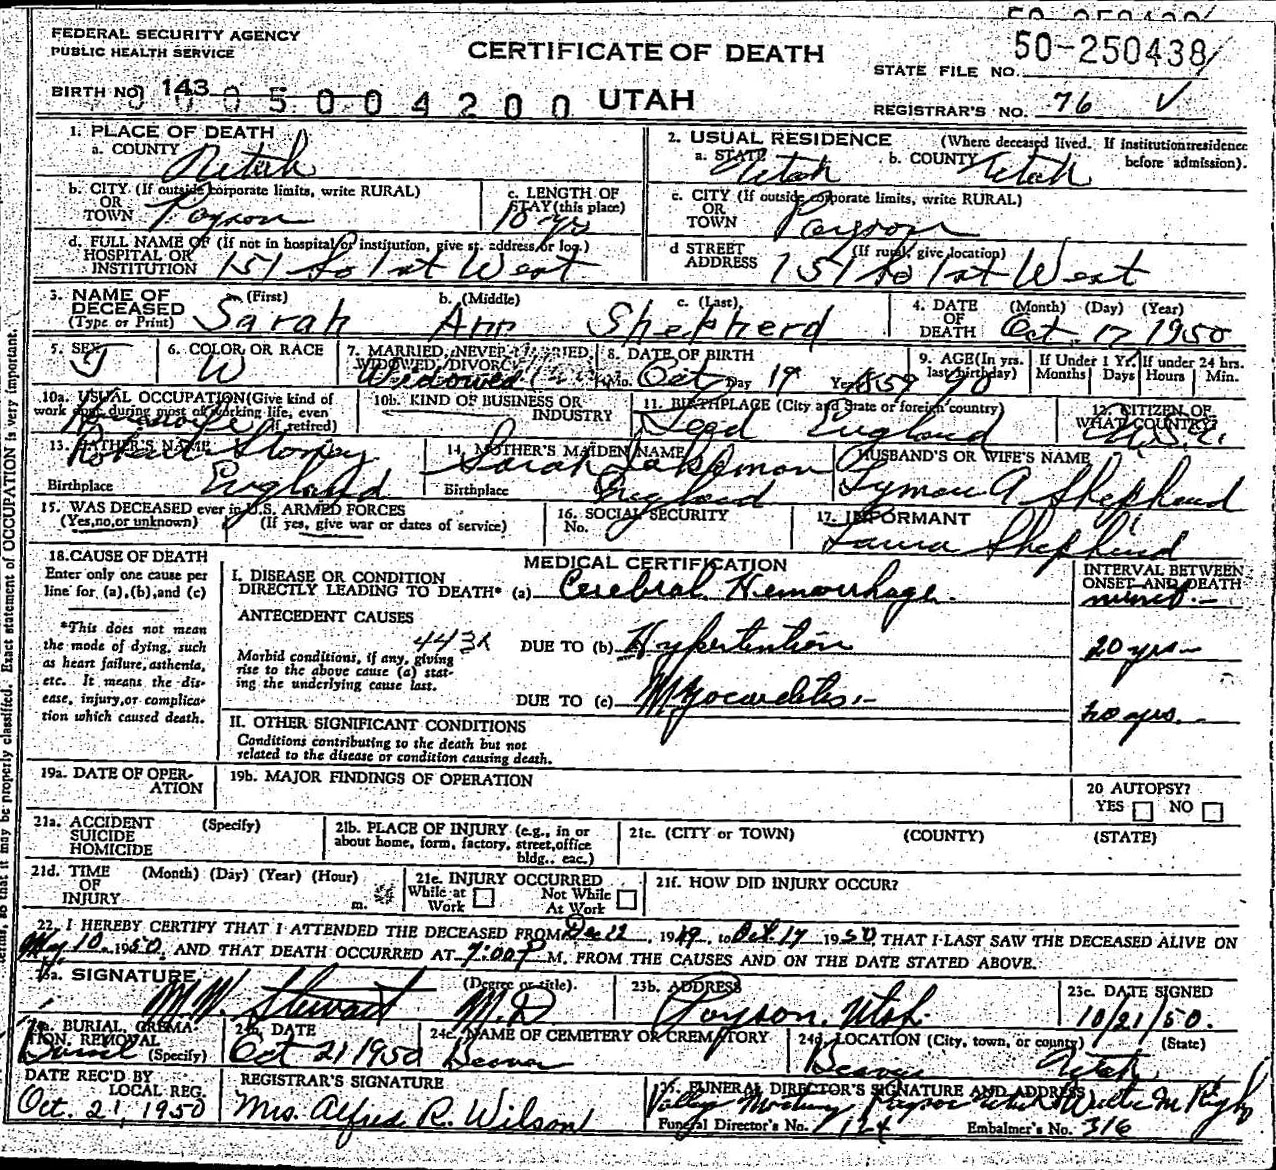 FEDERAL SECURITY AGENCY
PUBLIC HEALTH SERVICE
CERTIFICATE OF DEATH
50-250438
STATE FILE NO.
BIRTH NO. 143
0005004200
UTAH
REGISTRAR'S NO. 76 ✓
1. PLACE OF DEATH
a. COUNTY Utah
2. USUAL RESIDENCE (Where deceased lived. If institution: residence before admission).
a. STATE Utah b. COUNTY Utah
b. CITY (If outside corporate limits, write RURAL) OR TOWN Payson
c. LENGTH OF STAY (this place) 10 yrs
c. CITY (If outside corporate limits, write RURAL) OR TOWN Payson
d. FULL NAME OF (If not in hospital or institution, give st. address or loc.) HOSPITAL OR INSTITUTION 151 So 1st West
d STREET ADDRESS (If rural, give location) 151 So 1st West
3. NAME OF DECEASED (Type or Print) a. (First) Sarah b. (Middle) Ann c. (Last) Shepherd
4. DATE OF DEATH (Month) (Day) (Year) Oct. 17 1950
5. SEX F
6. COLOR OR RACE W
7. MARRIED, NEVER MARRIED, WIDOWED, DIVORCED Widowed
8. DATE OF BIRTH Mo. Oct Day 19 Year 1859
9. AGE (In yrs. last birthday) 90
If Under 1 Yr. Months Days
If under 24 hrs. Hours Min.
10a. USUAL OCCUPATION (Give kind of work done during most of working life, even if retired) Housewife
10b. KIND OF BUSINESS OR INDUSTRY
11. BIRTHPLACE (City and State or foreign country) England
12. CITIZEN OF WHAT COUNTRY? U.S.A.
13. FATHER'S NAME Robert Stoney
Birthplace England
14. MOTHER'S MAIDEN NAME Sarah Jakeman
Birthplace England
HUSBAND'S OR WIFE'S NAME
Lyman A Shepherd
15. WAS DECEASED ever in U.S. ARMED FORCES
(Yes, no, or unknown) (If yes, give war or dates of service)
16. SOCIAL SECURITY No.
17. INFORMANT
Laura Shepherd
18. CAUSE OF DEATH
Enter only one cause per line for (a), (b), and (c)
*This does not mean the mode of dying, such as heart failure, asthenia, etc. It means the disease, injury, or complication which caused death.
MEDICAL CERTIFICATION
INTERVAL BETWEEN ONSET AND DEATH
I. DISEASE OR CONDITION DIRECTLY LEADING TO DEATH* (a) Cerebral Hemorrhage.
ANTECEDENT CAUSES
443X
Morbid conditions, if any, giving rise to the above cause (a) stating the underlying cause last.
DUE TO (b) Hypertention 20 yrs-
DUE TO (c) Myocarditis.-
II. OTHER SIGNIFICANT CONDITIONS
Conditions contributing to the death but not related to the disease or condition causing death.
19a. DATE OF OPERATION
19b. MAJOR FINDINGS OF OPERATION
20 AUTOPSY?
YES NO
21a. ACCIDENT SUICIDE HOMICIDE (Specify)
21b. PLACE OF INJURY (e.g., in or about home, form, factory, street, office bldg., eac.)
21c. (CITY or TOWN) (COUNTY) (STATE)
21d. TIME OF INJURY (Month) (Day) (Year) (Hour) m.
21e. INJURY OCCURRED
While at Work Not While At Work
21f. HOW DID INJURY OCCUR?
22. I HEREBY CERTIFY THAT I ATTENDED THE DECEASED FROM Dec 12, 1949, to Oct. 17 1950, THAT I LAST SAW THE DECEASED ALIVE ON
May 10 1950, AND THAT DEATH OCCURRED AT 7:00 P M. FROM THE CAUSES AND ON THE DATE STATED ABOVE.
SIGNATURE (Degree or title).
M.W. Stewart M.D
23b. ADDRESS
Payson, Utah.
23c. DATE SIGNED
10/21/50.
BURIAL, CREMATION, REMOVAL (Specify) Burial
24b. DATE
Oct 21 1950
24c. NAME OF CEMETERY OR CREMATORY
Beaver
24d. LOCATION (City, town, or county) (State)
Beaver Utah
DATE REC'D BY LOCAL REG.
Oct. 21, 1950
REGISTRAR'S SIGNATURE
Mrs. Alfred R. Wilson
25. FUNERAL DIRECTOR'S SIGNATURE AND ADDRESS
Valley Mortuary Payson Utah
Funeral Director's No. Embalmer's No. 316
items, so that it may be properly classified. Exact statement of OCCUPATION is very important.